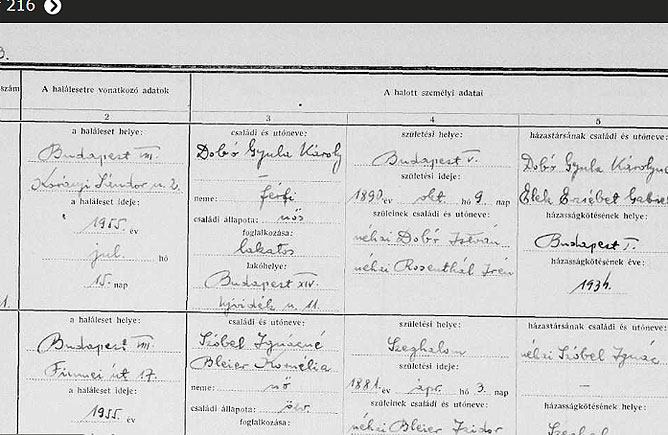 216
3.
szám
A halálesetre vonatkozó adatok
A halott személyi adatai
2
3
4
5
a haláleset helye:
Budapest VIII.
Korányi Sándor u. 2.
a haláleset ideje:
1955. év
jul. hó
15. nap
családi és utóneve:
Dobó Gyula Károly
—
neme: férfi
családi állapota: nős
foglalkozása:
lakatos
lakóhelye:
Budapest XIV.
Ujvidék u. 11.
születési helye:
Budapest V.
születési ideje:
év okt. hó 9. nap
szüleinek családi és utóneve:
néhai Dobó István
néhai Rosenthál Irén
házastársának családi és utóneve:
Dobó Gyula Károlyné
Elek Erzsébet
házasságkötésének helye:
Budapest I.
házasságkötésének éve:
1934.
1.
a haláleset helye:
Budapest VIII.
Fiumei út 17.
a haláleset ideje:
1955. év
családi és utóneve:
Ignácné
Bleier Kornélia
neme: nő
családi állapota: özv.
foglalkozása:
születési helye:
Szeghalom
születési ideje:
1881. év ápr. hó 3. nap
szüleinek családi és utóneve:
néhai Bleier Izidor
házastársának családi és utóneve:
néhai Ignác
—
házasságkötésének helye: